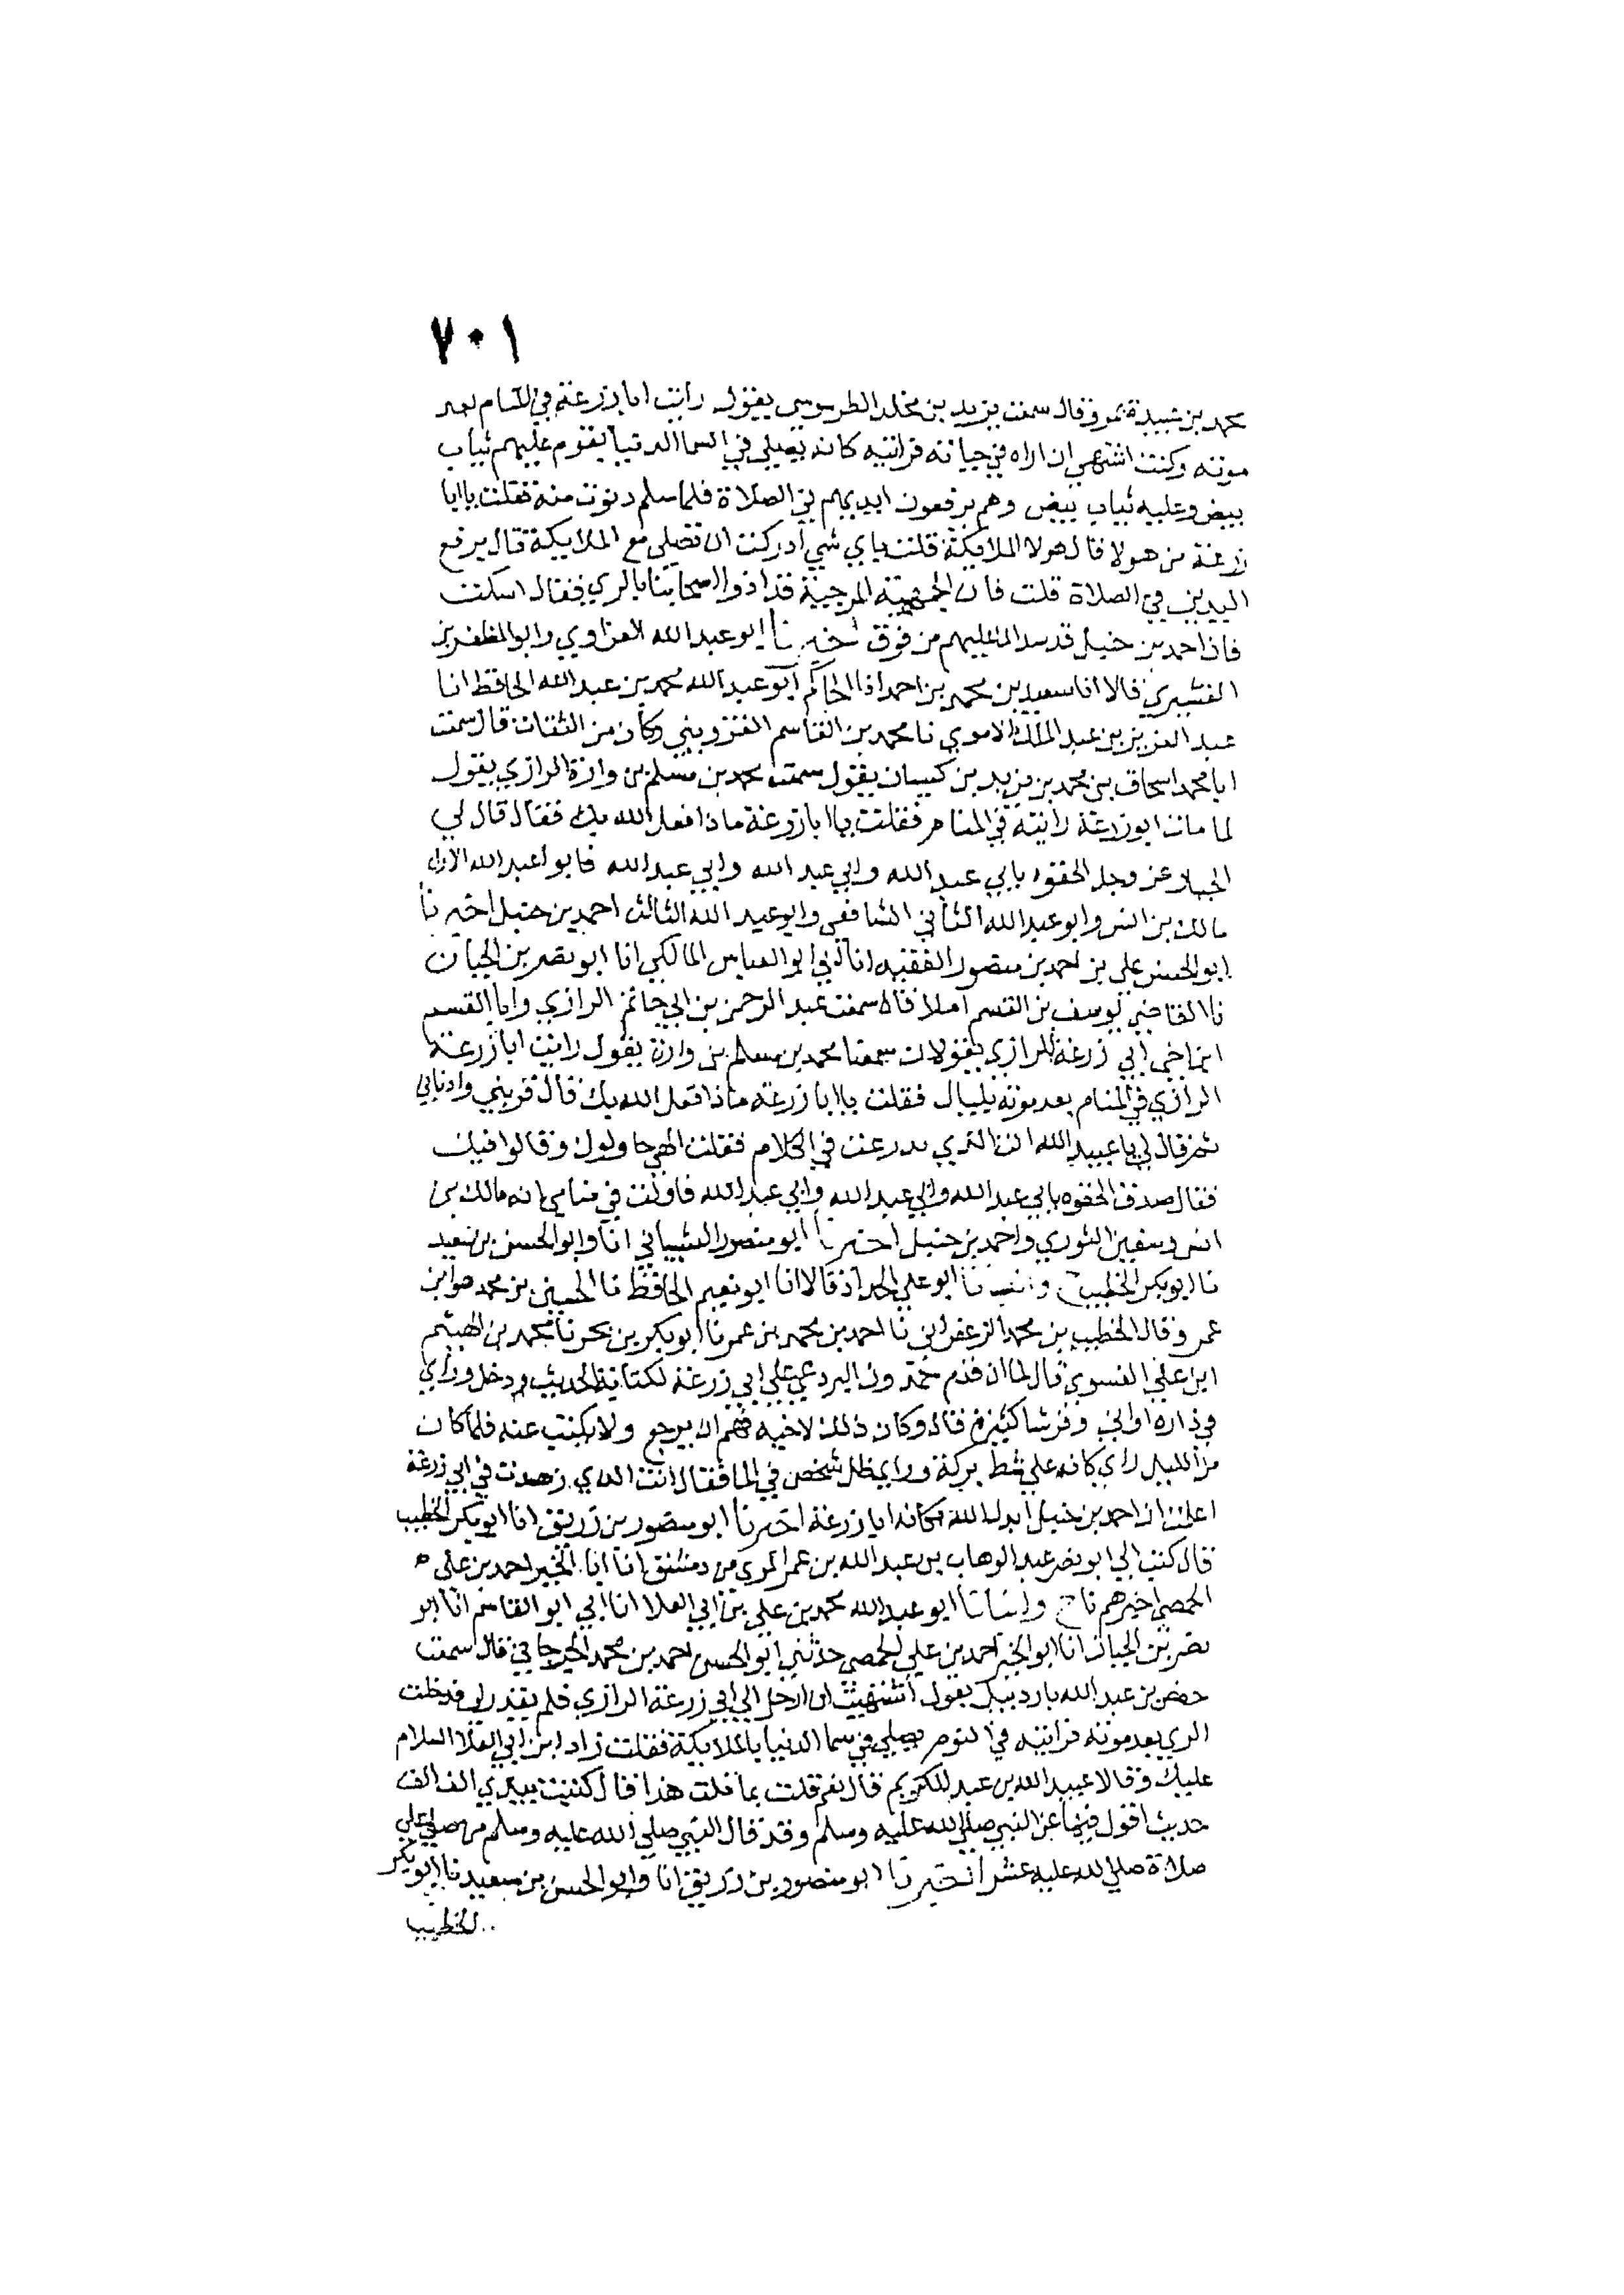 ٧٠١
محمد بن شبيبة بمرو قال سمعت يزيد بن مخلد الطرسوسي يقول رايت ابا زرعة في المنام بعد
موته وكنت اشتهي ان اراه في حياته فرايته كانه يصلي في السما الدنيا بقوم عليهم ثياب
بيض وعليه ثياب بيض وهم يرفعون ايديهم في الصلاة فلما سلم دنوت منه فقلت يا ابا
زرعة من هولا قال هولا الملايكة قلت باي شي ادركت ان تصلي مع الملايكة قال برفع
اليدين في الصلاة قلت فان الجهمية المرجية قد اذوا اصحابنا بالري فقال اسكت
فان احمد بن حنبل قد سد الما عليهم من فوق اخبرنا ابو عبد الله الفراوي وابو المظفر بن
القشيري قالا انا سعيد بن محمد بن احمد انا الحاكم ابو عبد الله محمد بن عبد الله الحافظ انا
عبد العزيز بن عبد الملك الاموي نا محمد بن القاسم القزويني وكان من الثقات قال سمعت
ابا محمد اسحاق بن محمد بن يزيد بن كيسان يقول سمعت محمد بن مسلم بن وارة الرازي يقول
لما مات ابو زرعة رايته في المنام فقلت يا ابا زرعة ماذا فعل الله بك فقال قال لي
الجبار عز وجل الحقوه بابي عبد الله وابي عبد الله وابي عبد الله فابو عبد الله الاول
مالك بن انس وابو عبد الله الثاني الشافعي وابو عبد الله الثالث احمد بن حنبل اخبرنا
ابو الحسن علي بن احمد بن منصور الفقيه انا ابي ابو العباس المالكي انا ابو نصر بن الجبان
نا القاضي يوسف بن القسم املا قال سمعت عبد الرحمن بن ابي حاتم الرازي وابا القسم
ابن اخي ابي زرعة الرازي يقولان سمعنا محمد بن مسلم بن وارة يقول رايت ابا زرعة
الرازي في المنام بعد موته بليال فقلت يا ابا زرعة ماذا فعل الله بك قال قربني وادناني
ثم قال لي يا عبيد الله انت الذي تدرعت في الكلام فقلت الهي حاولوك وقالوا فيك
فقال صدقت الحقوه بابي عبد الله وابي عبد الله وابي عبد الله فاولت في منامي انه مالك بن
انس وسفين الثوري واحمد بن حنبل اخبرنا ابو منصور الشيباني انا وابو الحسن بن سعيد
نا ابو بكر الخطيب ح وانبانا ابو علي الحداد قالا انا ابو نعيم الحافظ نا الحسين بن محمد هو ابن
عمر وقال الخطيب بن محمد الزعفراني نا احمد بن محمد بن عمر نا ابو بكر بن بحر نا محمد بن الهيثم
ابن علي الفسوي قال لما ان قدم حمدون البردعي علي ابي زرعة لكتابة الحديث ودخل وراي
في داره اواني وفرشا كثيرة قال وكان ذلك لاخيه فهم ان يرجع ولا يكتب عنه فلما كان
من الليل راي كانه علي شط بركة وراي ظل شخص في الما فقال انت الذي زهدت في ابي زرعة
اعلمت ان احمد بن حنبل ابدل الله مكانه ابا زرعة اخبرنا ابو منصور بن زريق انا ابو بكر الخطيب
قال كتب الي ابو نصر عبد الوهاب بن عبد الله بن عمر المري من دمشق انا ابا الخير احمد بن علي
الحمصي اخبرهم نا ح وانبانا ابو عبد الله محمد بن علي بن ابي العلا انا ابي ابو القاسم انا ابو
نصر بن الجبان انا ابو الخير احمد بن علي الحمصي حدثني ابو الحسن احمد بن محمد الجرجاني قال سمعت
حفص بن عبد الله باردبيل يقول اشتهيت ان ارحل الي ابي زرعة الرازي فلم يقدر لي فدخلت
الري بعد موته فرايته في النوم يصلي في سما الدنيا بالملايكة فقلت زاد ابن ابي العلا السلام
عليك وقالا عبيد الله بن عبد الكريم قال نعم قلت بما نلت هذا قال كتبت بيدي الف الف
حديث اقول فيها عن النبي صلي الله عليه وسلم وقد قال النبي صلي الله عليه وسلم من صلي علي
صلاة صلي الله عليه عشرا اخبرنا ابو منصور بن زريق انا وابو الحسن بن سعيد نا ابو بكر
الخطيب